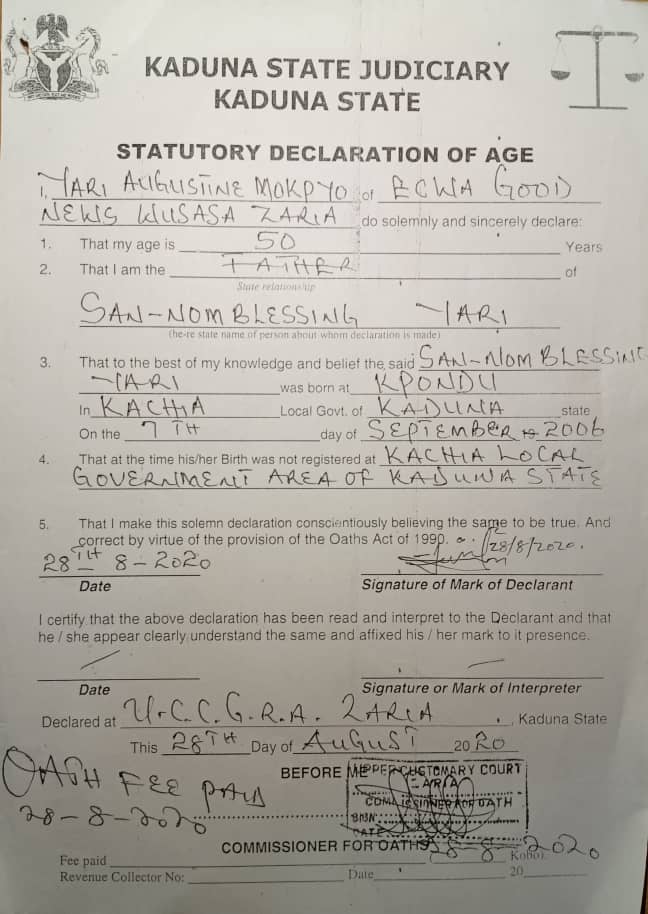 KADUNA STATE JUDICIARY
KADUNA STATE
STATUTORY DECLARATION OF AGE
I, YARI AUGUSTINE MOKPYO of ECWA GOOD
NEWS WUSASA ZARIA do solemnly and sincerely declare:
1. That my age is 50 Years
2. That I am the FATHER of
State relationship
SAN-NOM BLESSING YARI
(he-re state name of person about whom declaration is made)
3. That to the best of my knowledge and belief the said SAN-NOM BLESSING
YARI was born at KPONDU
In KACHIA Local Govt. of KADUNA state
On the 7TH day of SEPTEMBER 19 2006
4. That at the time his/her Birth was not registered at KACHIA LOCAL
GOVERNMENT AREA OF KADUNA STATE
5. That I make this solemn declaration conscientiously believing the same to be true. And
correct by virtue of the provision of the Oaths Act of 1990.
28TH 8-2020 28/8/2020.
Date Signature of Mark of Declarant
I certify that the above declaration has been read and interpret to the Declarant and that
he / she appear clearly understand the same and affixed his / her mark to it presence.
Date Signature or Mark of Interpreter
Declared at U.C.C.G.R.A. ZARIA, Kaduna State
This 28TH Day of AUGUST 2020
OATH FEE PAID
28-8-2020
BEFORE ME
UPPER CUSTOMARY COURT
ZARIA
COMMISSIONER FOR OATH
SIGN
DATE
COMMISSIONER FOR OATHS 28-8-2020
Fee paid Kobo.
Revenue Collector No: Date 20